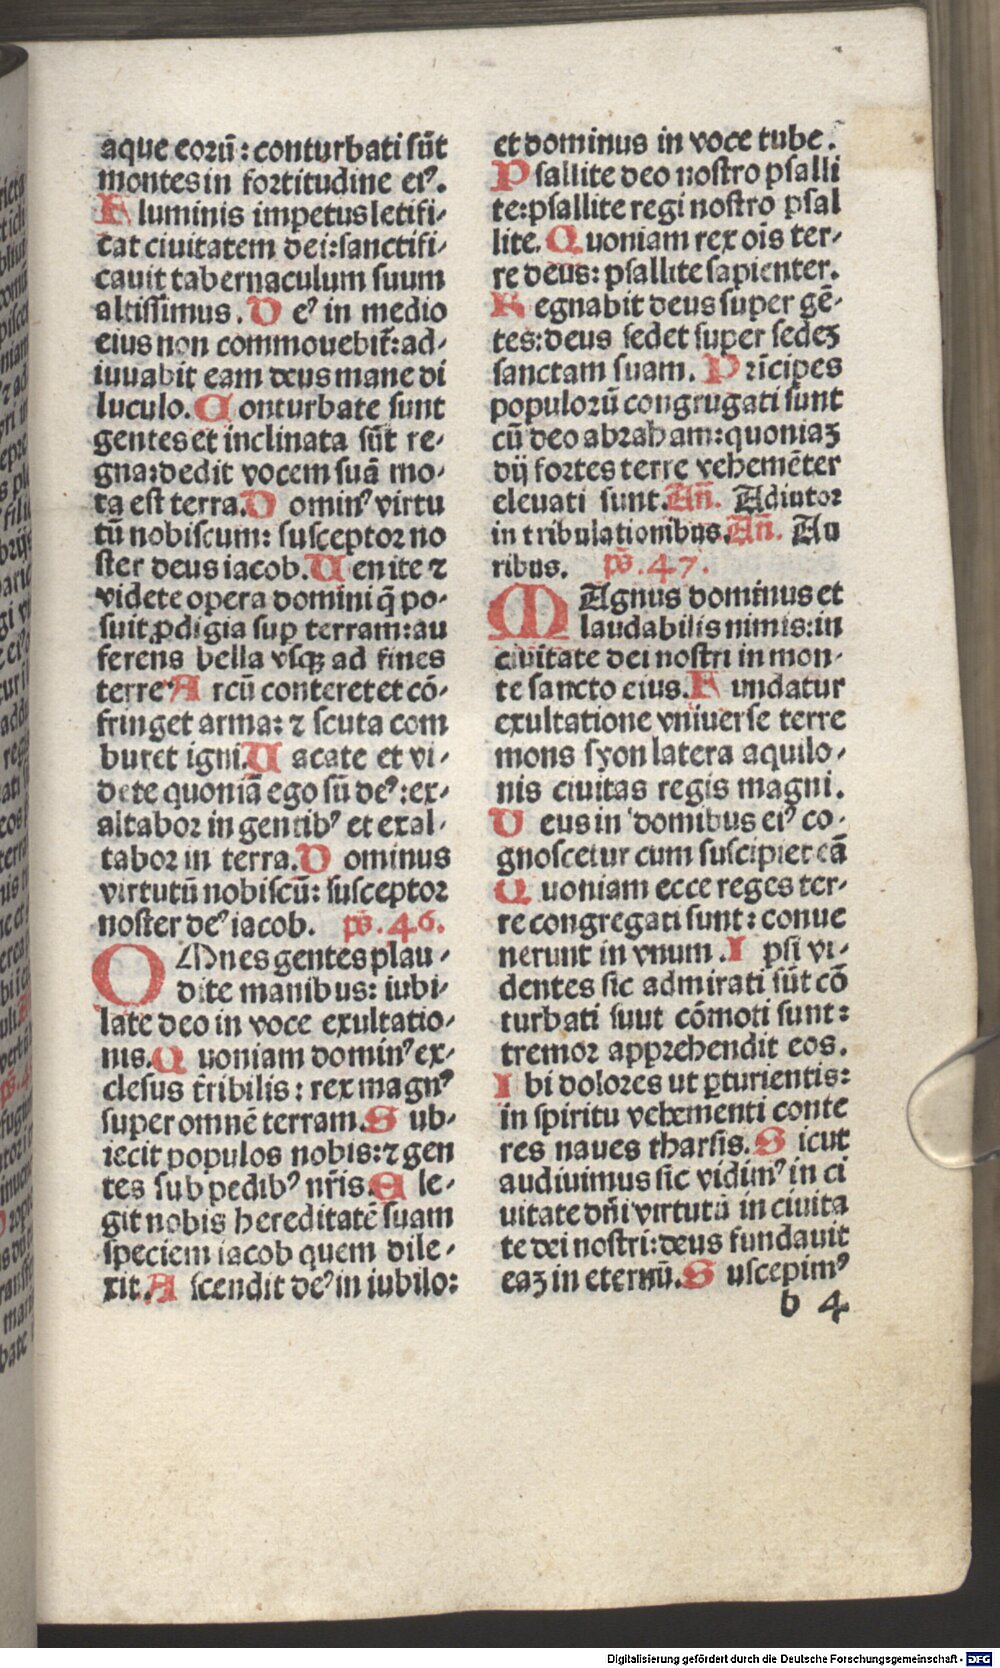 aque eorū: conturbati sūt
montes in fortitudine eiꝰ.
Fluminis impetus letifi-
cat ciuitatem dei: sanctifi-
cauit tabernaculum suum
altissimus. Deꝰ in medio
eius non commouebit̃: ad-
iuuabit eam deus mane di
luculo. Conturbate sunt
gentes et inclinata sūt re-
gna: dedit vocem suā mo-
ta est terra. Dominꝰ virtu
tū nobiscum: susceptor no
ster deus iacob. Uenite ⁊
videte opera domini q̄ po-
suit ꝓdigia sup terram: au
ferens bella vsqꝫ ad fines
terre Arcū conteret et cō-
fringet arma: ⁊ scuta com
buret igni. Uacate et vi-
dete quoniā ego sū deꝰ: ex-
altabor in gentibꝰ et exal-
tabor in terra. Dominus
virtutū nobiscū: susceptor
noster deꝰ iacob. ps̄. 46.
OMnes gentes plau-
dite manibus: iubi-
late deo in voce exultatio-
nis. Quoniam dominꝰ ex-
celsus t̃ribilis: rex magnꝰ
super omnē terram. Sub-
iecit populos nobis: ⁊ gen
tes sub pedibꝰ nr̄is. Ele-
git nobis hereditatē suam
speciem iacob quem dile-
xit. Ascendit deꝰ in iubilo:
et dominus in voce tube.
Psallite deo nostro psalli
te: psallite regi nostro psal
lite. Quoniam rex oīs ter-
re deus: psallite sapienter.
Regnabit deus super gē-
tes: deus sedet super sedeꝫ
sanctam suam. Prīcipes
populorū congrugati sunt
cū deo abraham: quoniaꝫ
dij fortes terre vehemēter
eleuati sunt. Añ. Adiutor
in tribulationibus. Añ. Au
ribus. ps̄. 47.
MAgnus dominus et
laudabilis nimis: in
ciuitate dei nostri in mon-
te sancto eius. Fundatur
exultatione vniuerse terre
mons syon latera aquilo-
nis ciuitas regis magni.
Deus in domibus eiꝰ co-
gnoscetur cum suscipiet eā
Quoniam ecce reges ter-
re congregati sunt: conue
nerunt in vnum. Ipsi vi-
dentes sic admirati sūt cō
turbati suut cōmoti sunt:
tremor apprehendit eos.
Ibi dolores ut ꝑturientis:
in spiritu vehementi conte
res naues tharsis. Sicut
audiuimus sic vidimꝰ in ci
uitate dñi virtutū in ciuita
te dei nostri: deus fundauit
eaꝫ in eternū. Suscepimꝰ
b 4
Digitalisierung gefördert durch die Deutsche Forschungsgemeinschaft - DFG